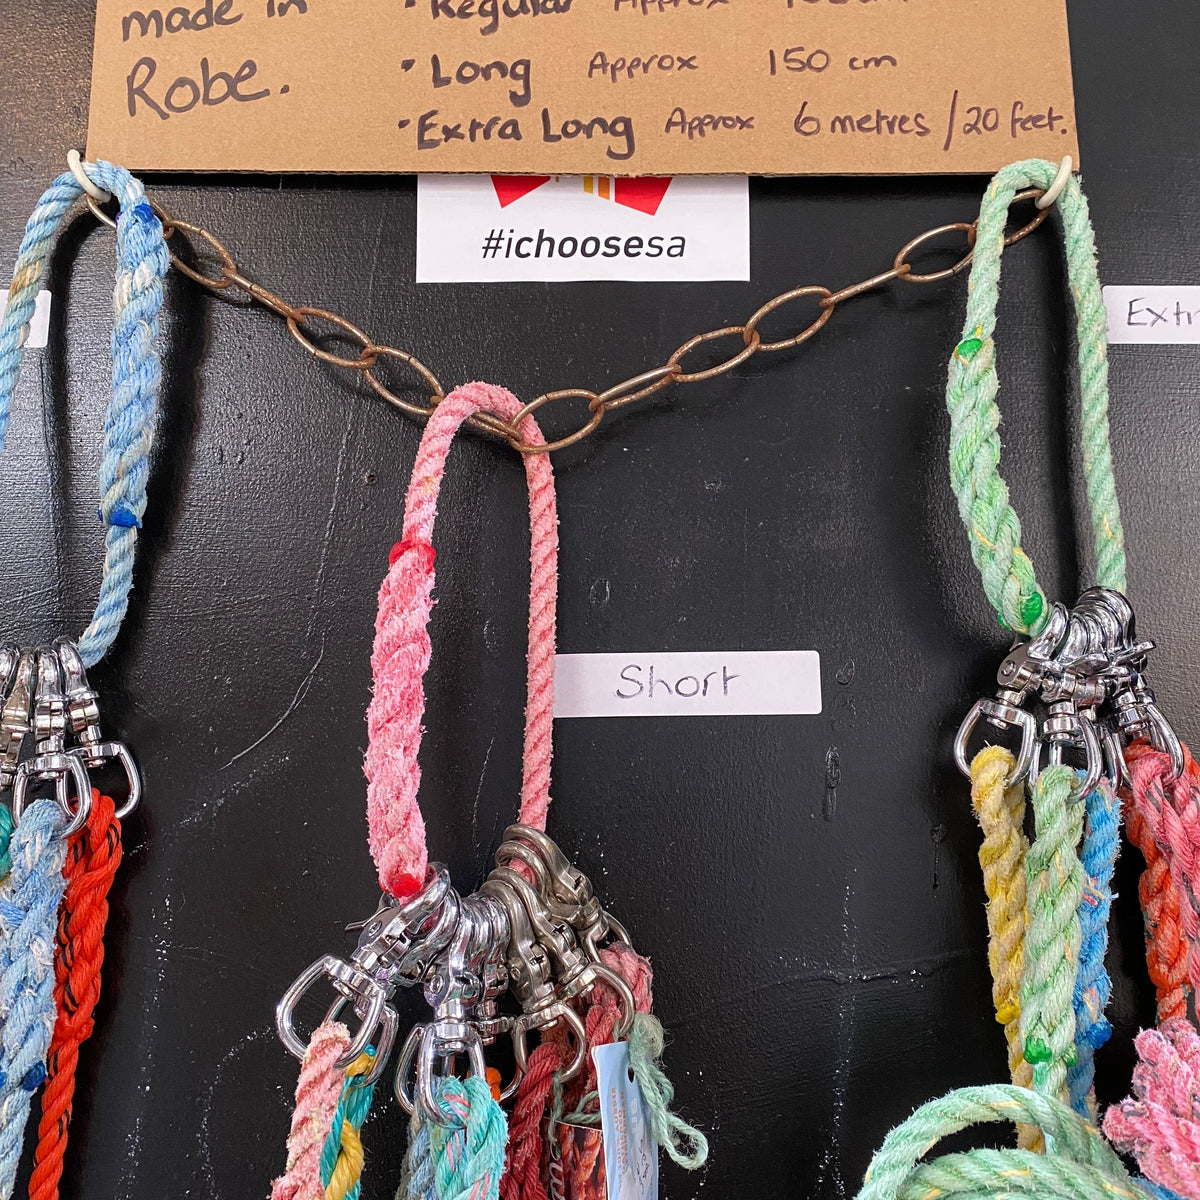 made in
Robe.
• Regular Approx
• Long Approx 150 cm
• Extra Long Approx 6 metres / 20 feet.
#ichoosesa
Short